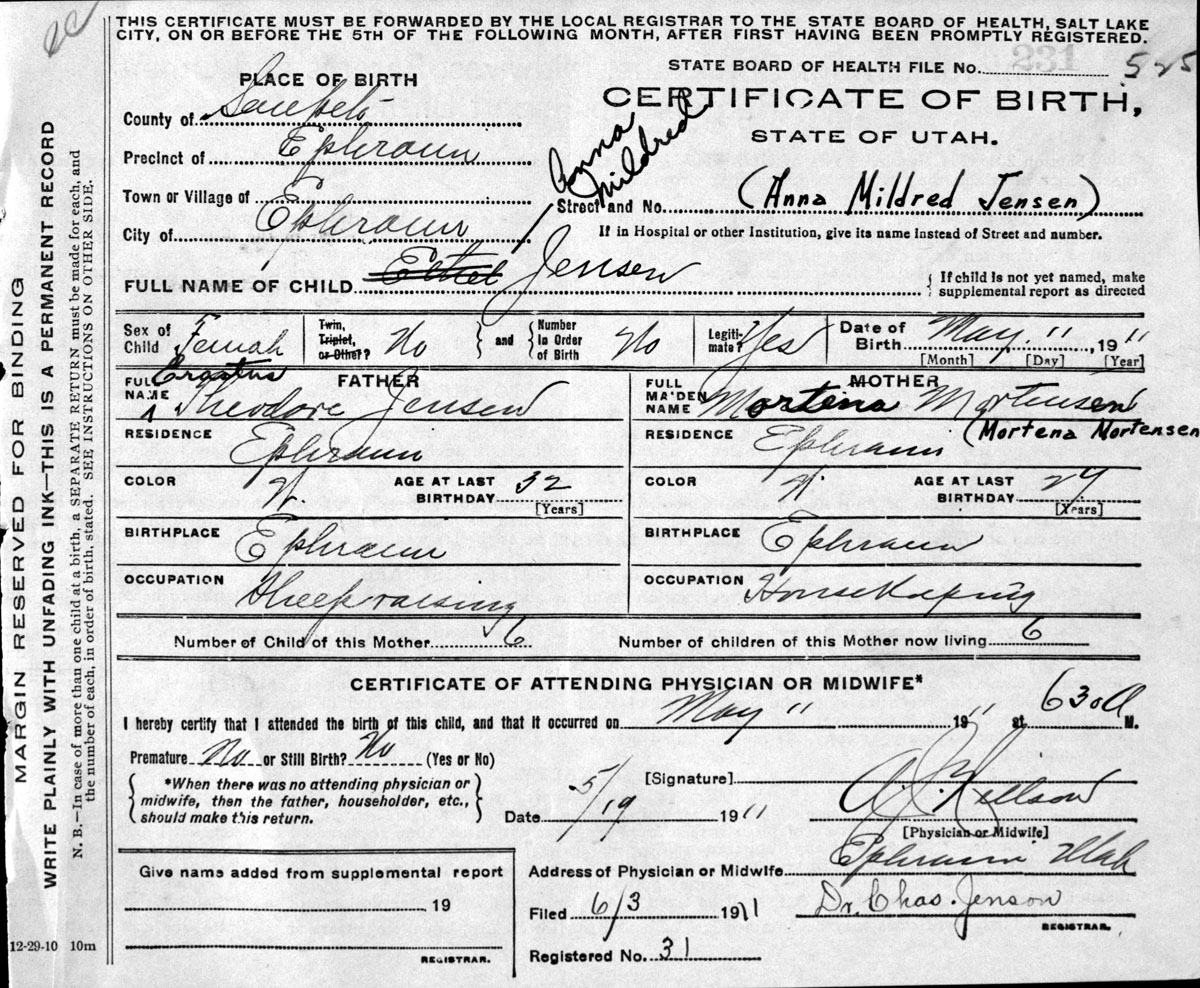 THIS CERTIFICATE MUST BE FORWARDED BY THE LOCAL REGISTRAR TO THE STATE BOARD OF HEALTH, SALT LAKE
CITY, ON OR BEFORE THE 5TH OF THE FOLLOWING MONTH, AFTER FIRST HAVING BEEN PROMPTLY REGISTERED.
STATE BOARD OF HEALTH FILE No. 231 525
PLACE OF BIRTH
CERTIFICATE OF BIRTH,
STATE OF UTAH.
County of Sanpete
Precinct of Ephraim
Town or Village of
Anna Mildred
Street and No. (Anna Mildred Jensen)
City of Ephraim
If in Hospital or other Institution, give its name instead of Street and number.
FULL NAME OF CHILD Ethel Jensen
{ If child is not yet named, make
supplemental report as directed
Sex of Child Female
Twin, Triplet, or Other? No
and
Number in Order of Birth No
Legitimate? Yes
Date of Birth May 11 1911
[Month] [Day] [Year]
FATHER
FULL NAME Erastus Theodore Jensen
MOTHER
FULL MAIDEN NAME Mortena Mortensen
(Mortena Mortensen
RESIDENCE Ephraim
RESIDENCE Ephraim
COLOR W. AGE AT LAST BIRTHDAY 32 [Years]
COLOR W. AGE AT LAST BIRTHDAY 29 [Years]
BIRTHPLACE Ephraim
BIRTHPLACE Ephraim
OCCUPATION Sheepraising
OCCUPATION Housekeeping
Number of Child of this Mother 6
Number of children of this Mother now living 6
CERTIFICATE OF ATTENDING PHYSICIAN OR MIDWIFE*
I hereby certify that I attended the birth of this child, and that it occurred on May 11 1911 at 630 A M.
Premature No or Still Birth? No (Yes or No)
*When there was no attending physician or
midwife, then the father, householder, etc.,
should make this return.
[Signature]
Date 5/19 1911
[Physician or Midwife]
Address of Physician or Midwife Ephraim Utah
Filed 6/3 1911 Dr. Chas. Jenson
REGISTRAR.
Registered No. 31
Give name added from supplemental report
19
REGISTRAR.
12-29-10 10m
MARGIN RESERVED FOR BINDING
WRITE PLAINLY WITH UNFADING INK—THIS IS A PERMANENT RECORD
N. B.—In case of more than one child at a birth, a SEPARATE RETURN must be made for each, and
the number of each, in order of birth, stated. SEE INSTRUCTIONS ON OTHER SIDE.